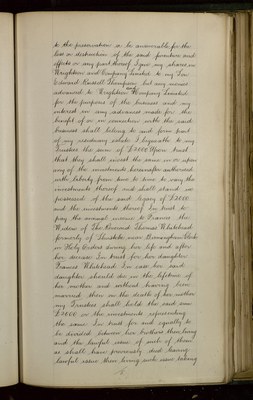 to the preservation or be answerable for the
loss or destruction of the said furniture and
effects or any part thereof I give my shares in
Wrightson and Company Limited to my Son
Edward Russell Thompson but any monies
advanced to Wrightson and Company Limited
for the purposes of the business and my
interest in any advances made for the
benefit of or in connection with the said
business shall belong to and form part
of my residuary estate I bequeath to my
Trustees the sum of £2000 Upon trust
that they shall invest the same in or upon
any of the investments hereinafter authorised
with liberty from time to time to vary the
investments thereof and shall stand
possessed of the said legacy of £2000
and the investments thereof In trust to
pay the annual income to Frances the
Widow of The Reverend Thomas Whitehead
formerly of near Birmingham Clerk
in Holy Orders during her life and after
her decease In trust for her daughter
Frances Whitehead In case her said
daughter should die in the lifetime of
her mother and without having been
married then on the death of her mother
my Trustees shall hold the said sum
£2000 or the investments representing
the same In trust for and equally to
be divided between her brothers then living
and the lawful issue of such of them
as shall have previously died having
lawful issue then living such issue taking